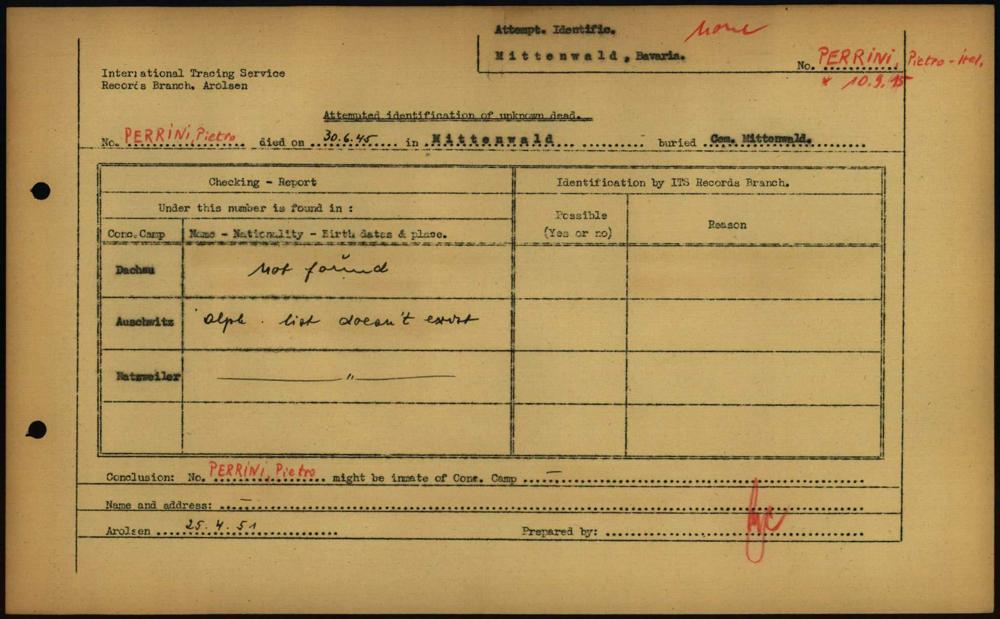 Attempt. Identific. none
Mittenwald, Bavaria.
No. PERRINI, Pietro - Ital,
* 10.9.15
International Tracing Service
Records Branch, Arolsen
Attempted identification of unknown dead.
No. PERRINI, Pietro died on 30.6.45 in Mittenwald buried Cem. Mittenwald.
Checking - Report Identification by ITS Records Branch.
Under this number is found in :
Conc.Camp Name - Nationality - Birth dates & place. Possible (Yes or no) Reason
Dachau not found
Auschwitz alph. list doesn't exist
Natzweiler — " —
Conclusion: No. PERRINI, Pietro might be inmate of Conc. Camp —
Name and address: —
Arolsen 25.4.51 Prepared by: